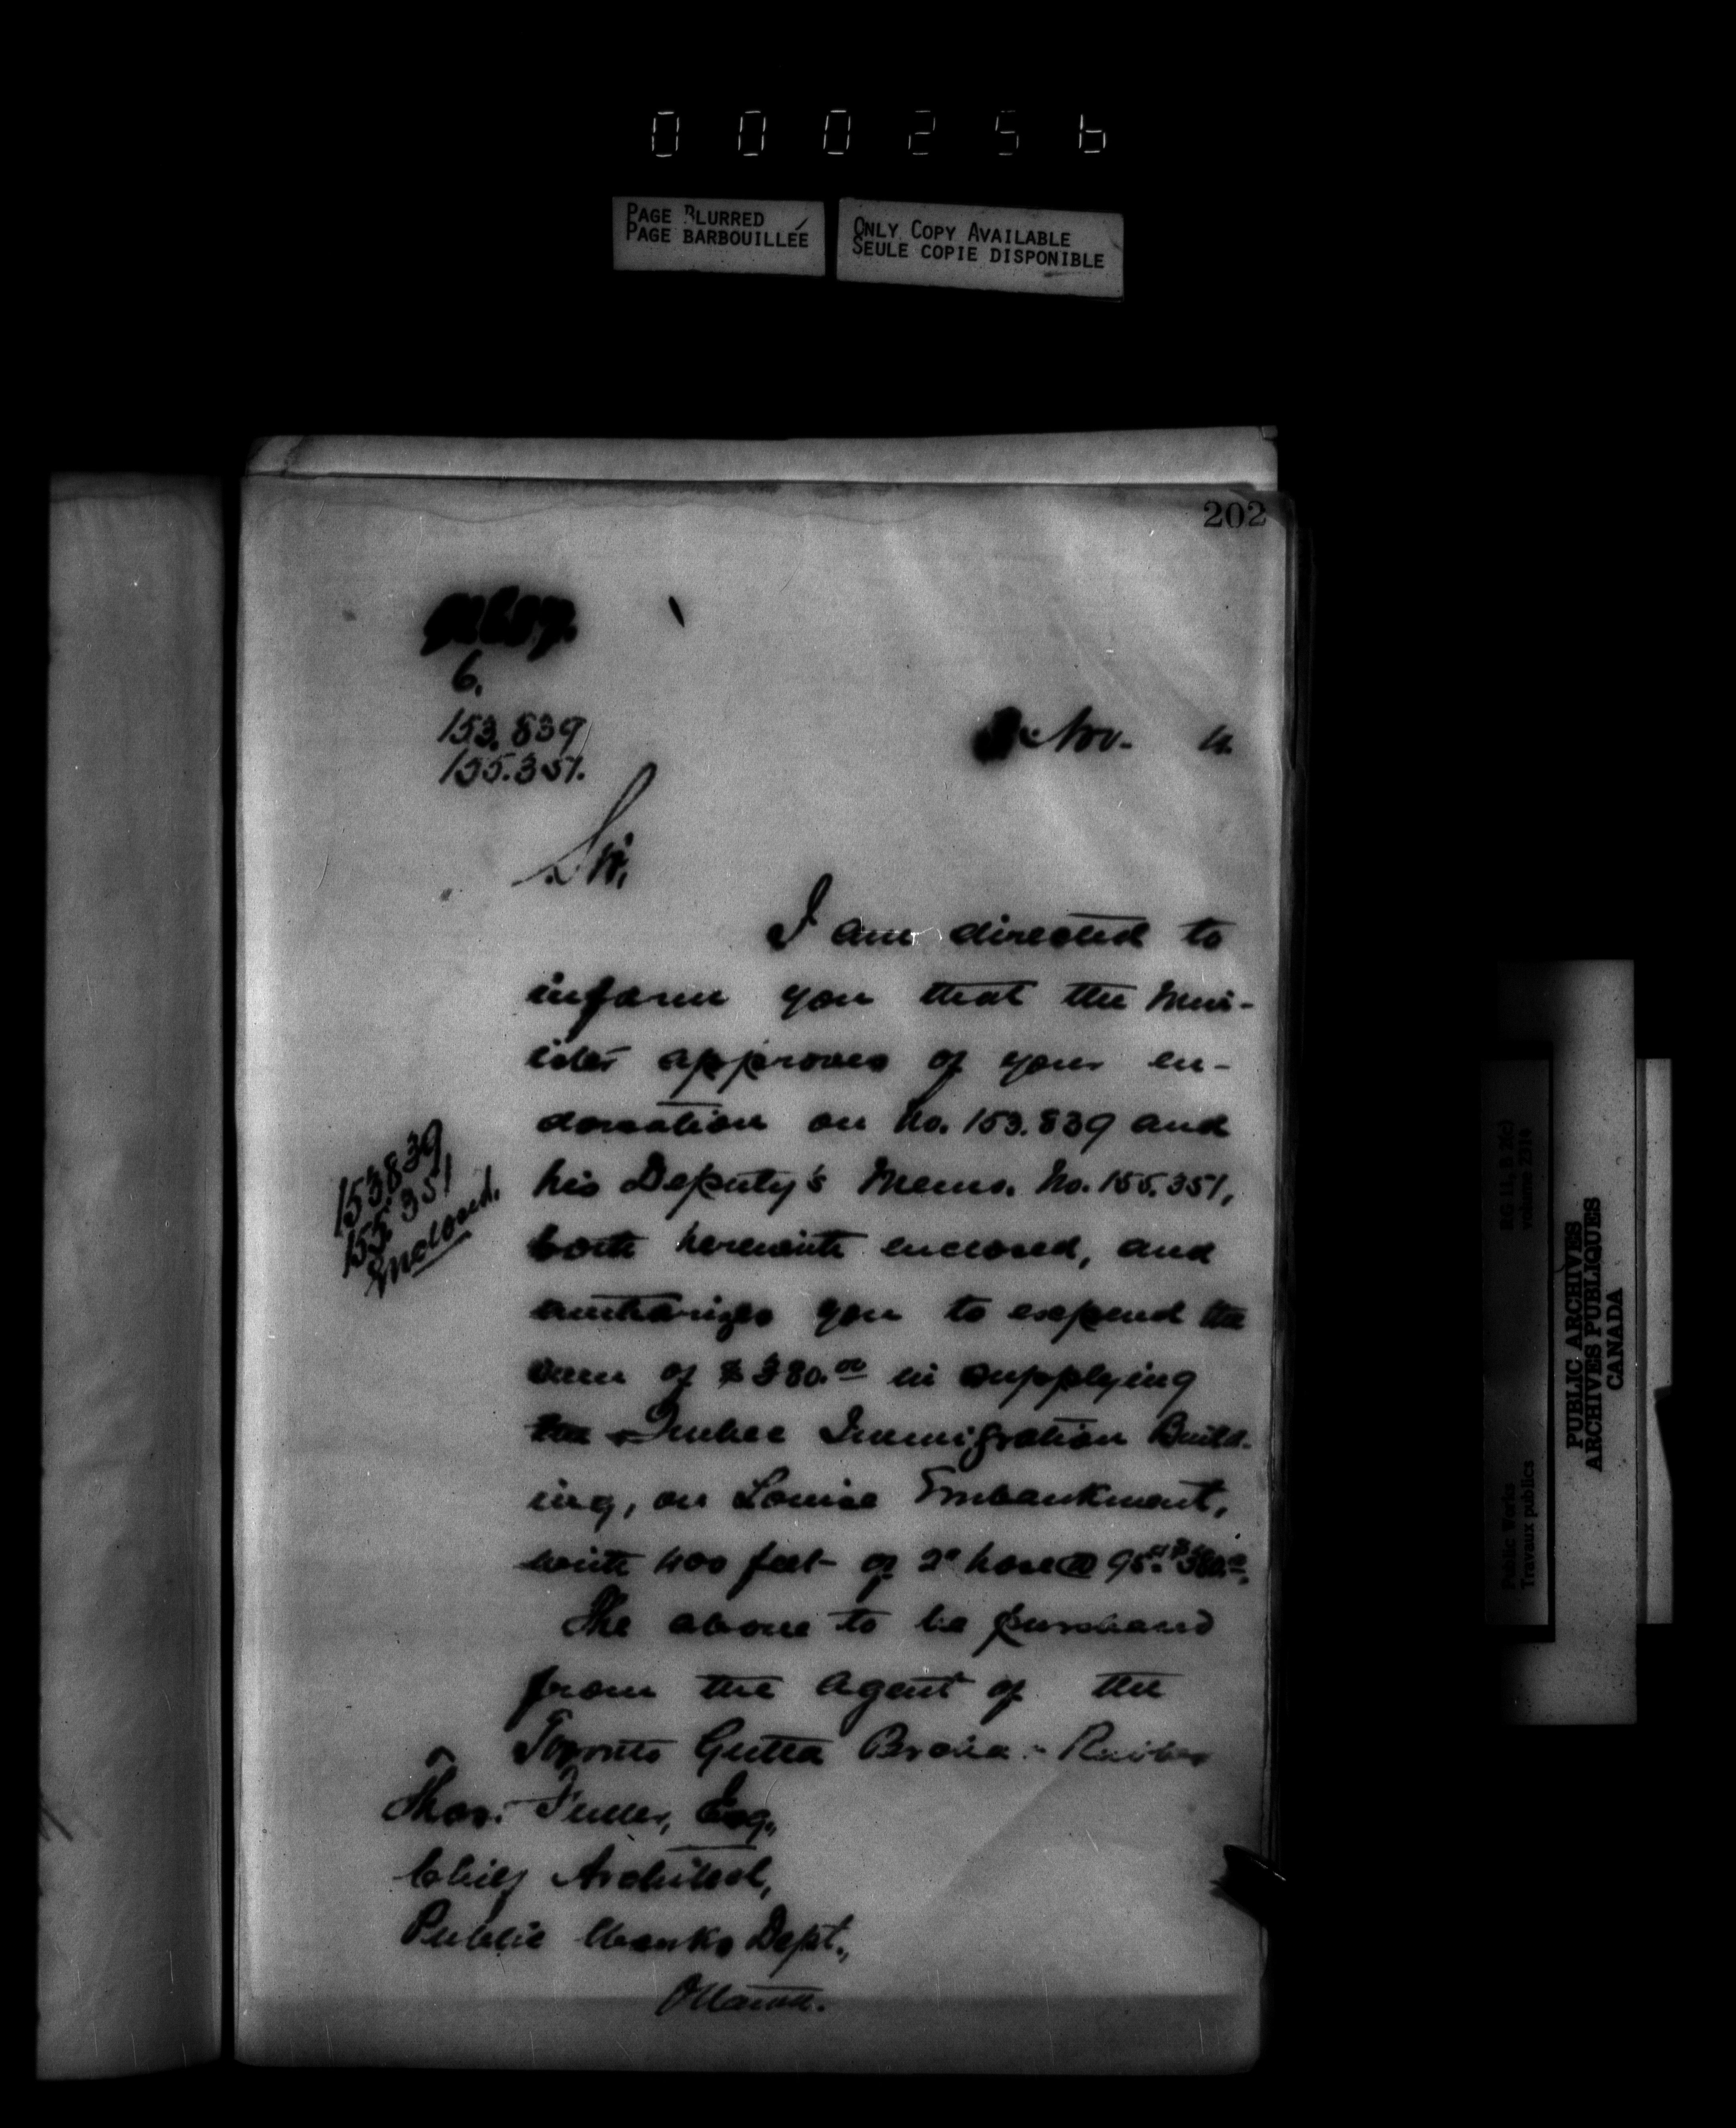 000256
PAGE BLURRED
PAGE BARBOUILLÉE
ONLY COPY AVAILABLE
SEULE COPIE DISPONIBLE
202
6.
153.839
155.351.
Nov.
Sir,
I am directed to
inform you that the Min-
ister approves of your en-
dorsation on No. 153.839 and
his Deputy's Memo. No. 155.351,
both herewith enclosed, and
authorizes you to expend the
sum of $380.00 in supplying
the Quebec Immigration Build-
ing, on Louise Embankment,
with 400 feet of 2" hose @ 95
The above to be purchased
from the Agent of the
Toronto Gutta Percha & Rubber
153839
155.351
Enclosed.
Thos. Fuller, Esq.,
Chief Architect,
Public Works Dept.,
Ottawa.
RG 11, B 2(c)
volume 2314
Public Works
Travaux publics
PUBLIC ARCHIVES
ARCHIVES PUBLIQUES
CANADA